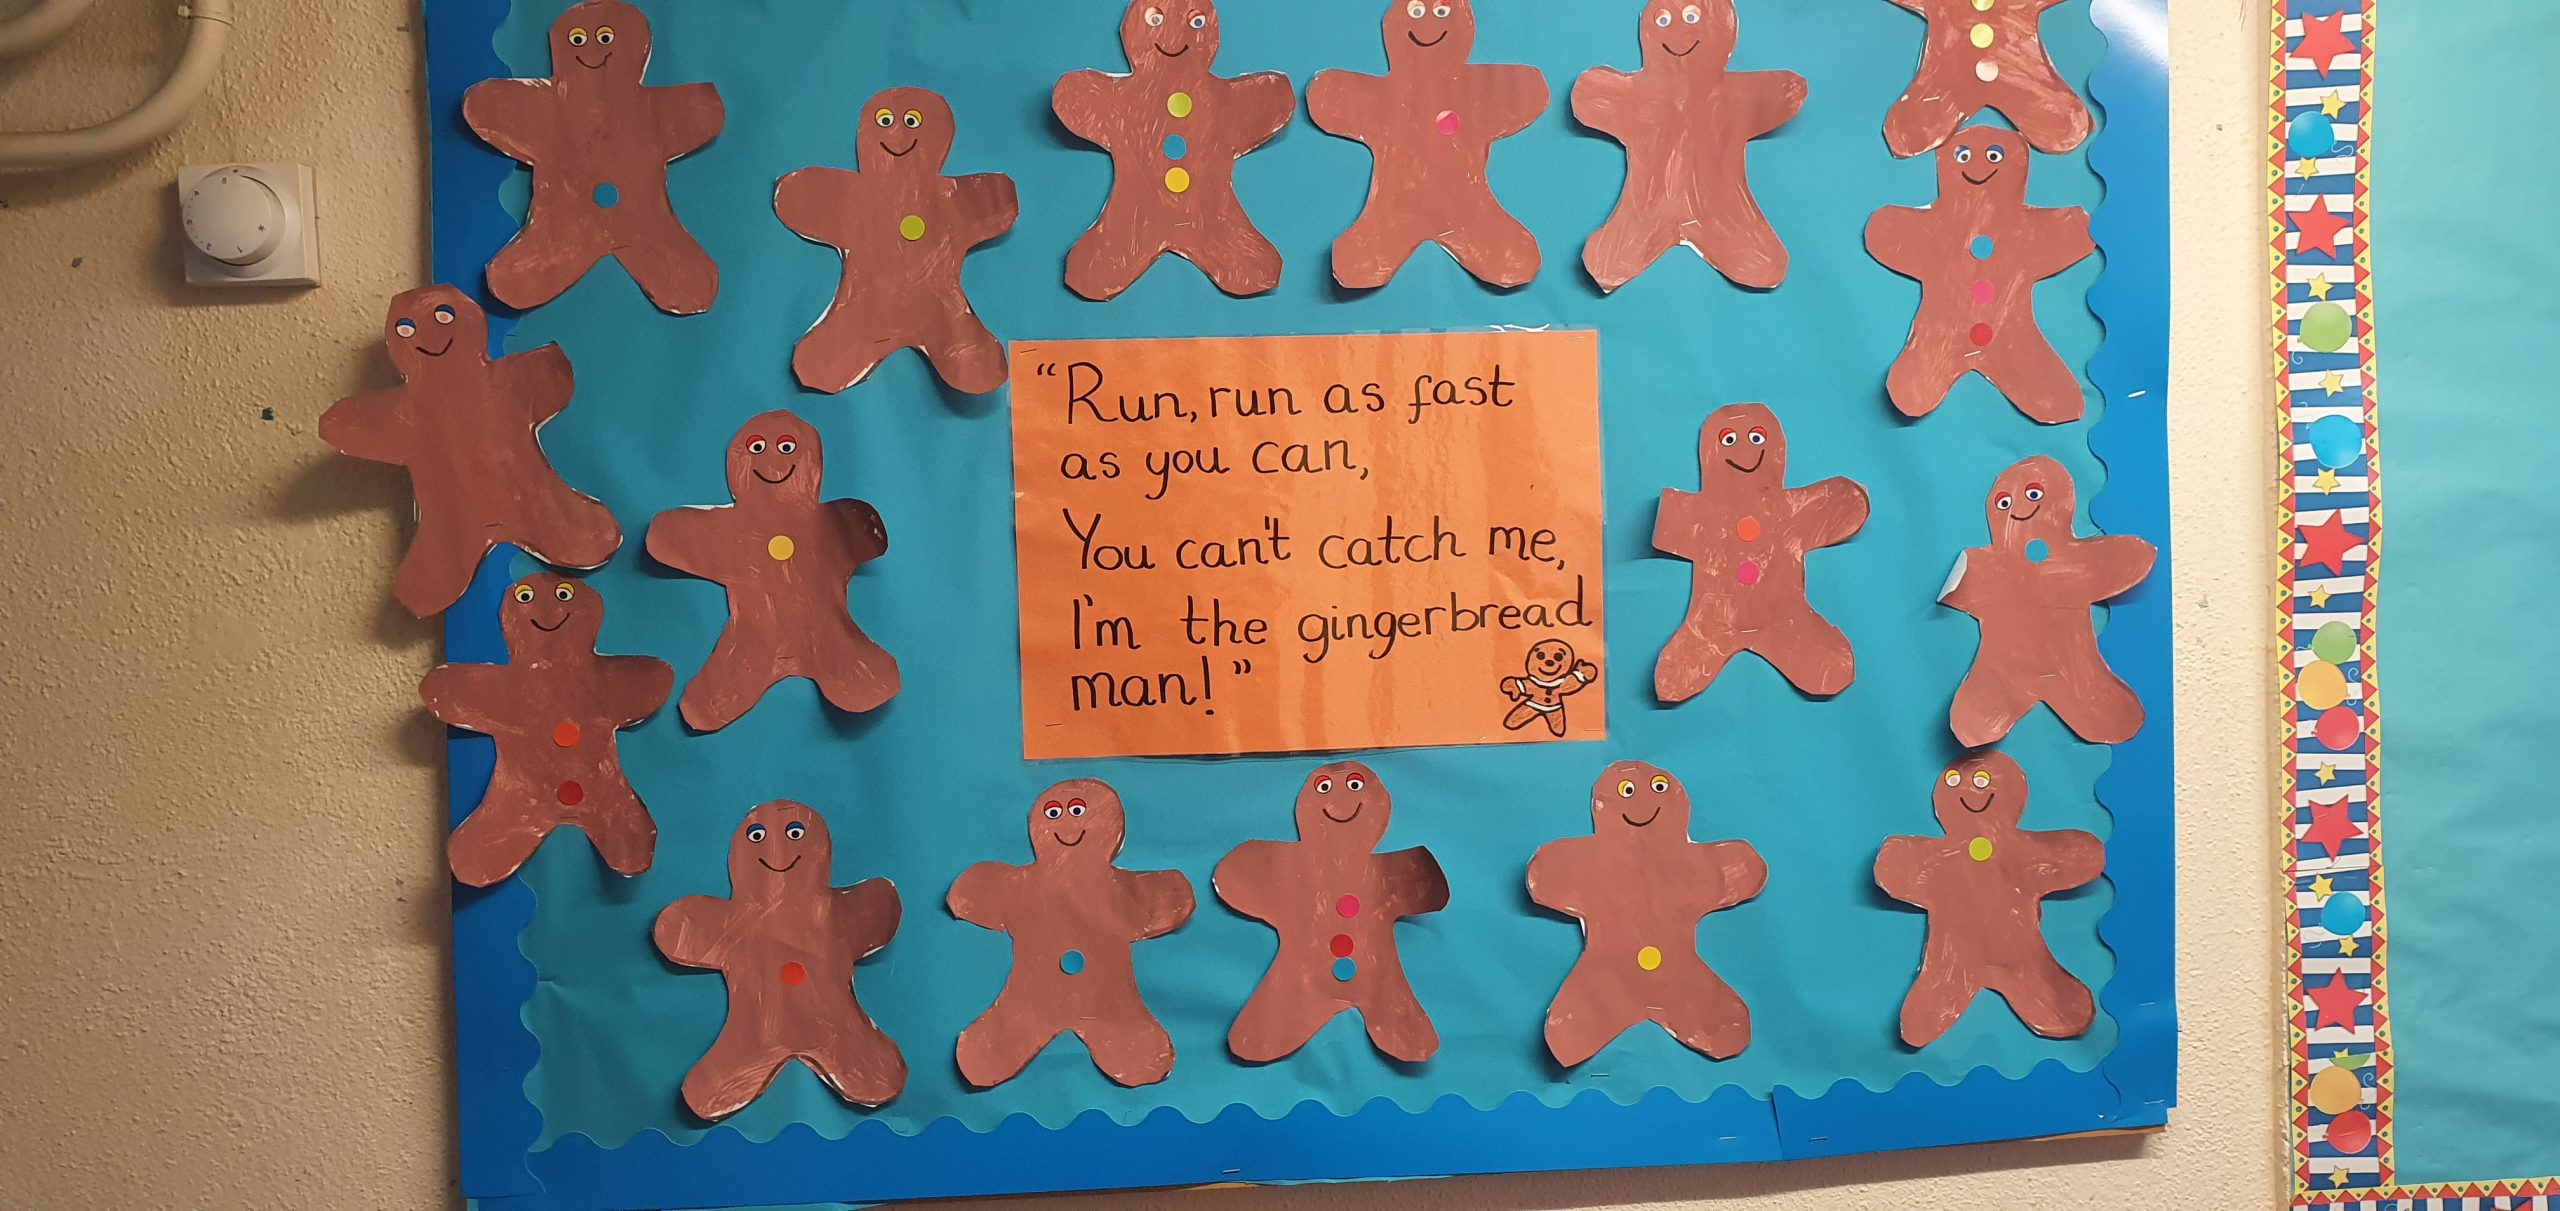 “Run, run as fast
as you can,
You can't catch me,
I'm the gingerbread
man!”